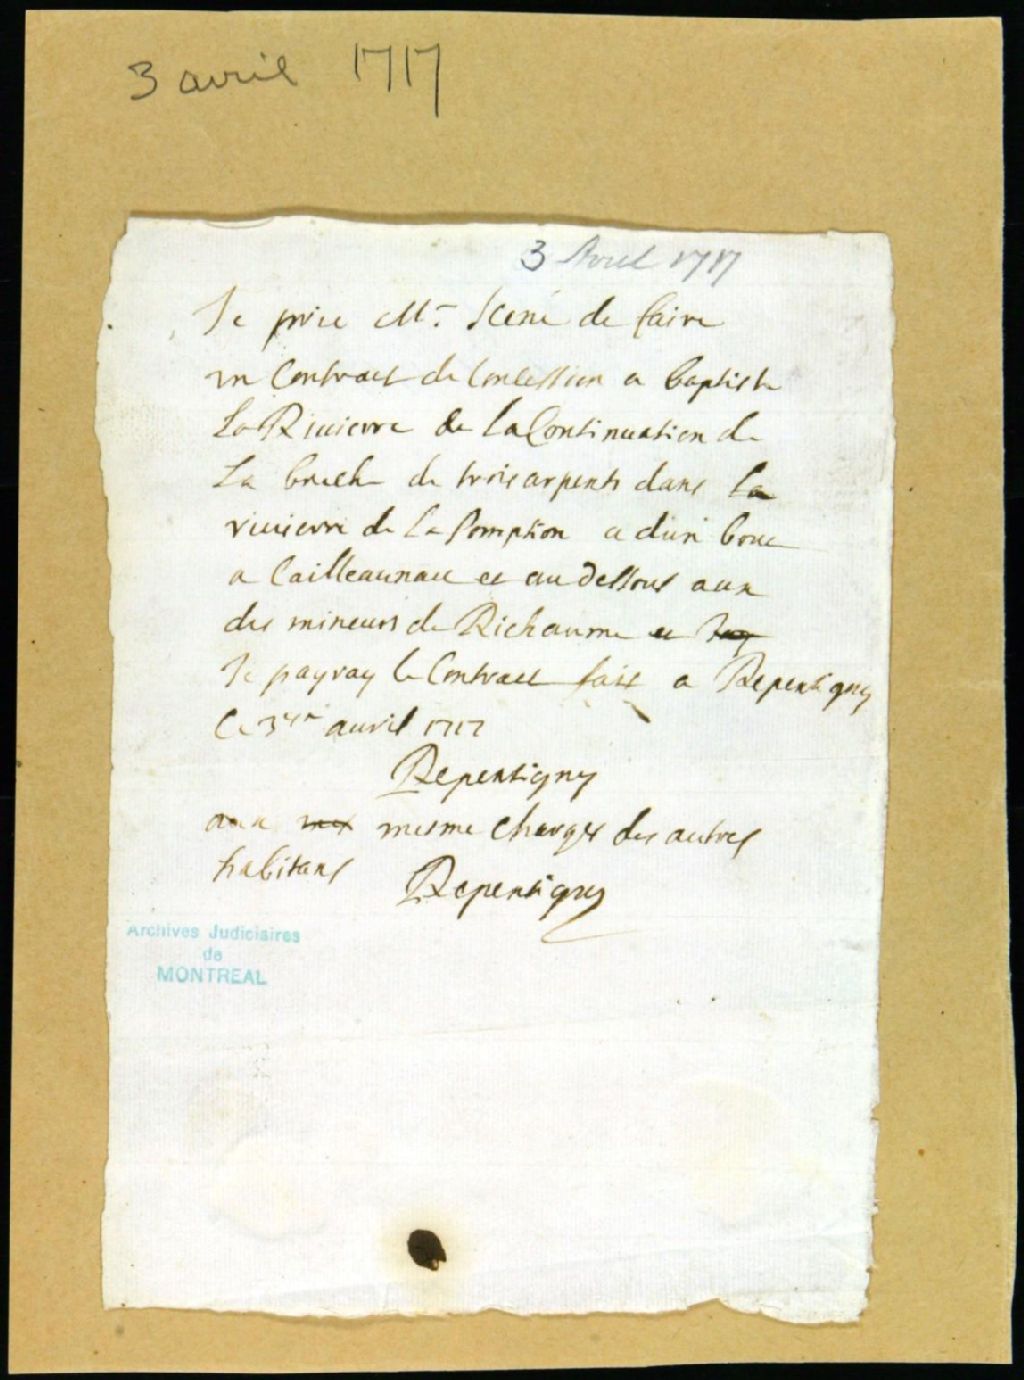 3 avril 1717
3 Avril 1717
Je prie Mr. Senné de faire
un Contract de Concession a baptiste
La Rivierre de la Continuation de
La de trois arpents dans la
rivierre de Lasomption a bout
a et au dessous aux
des mineurs de Richaume
Je payray le Contract fait a Repentigny
Le 3me avril 1717
Repentigny
aux mesme charges des autres
habitans Repentigny
Archives Judiciaires
de
MONTREAL